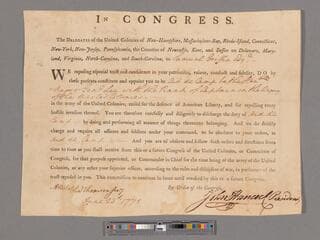 IN CONGRESS.
The DELEGATES of the United Colonies of New-Hampshire, Massachusetts-Bay, Rhode-Island, Connecticut,
New-York, New-Jersey, Pennsylvania, the Counties of Newcastle, Kent, and Sussex on Delaware, Maryland,
Virginia, North-Carolina, and South-Carolina, to Samuel Griffin Esqr
WE reposing especial trust and confidence in your patriotism, valour, conduct and fidelity, DO by
these presents constitute and appoint you to be Aid de Camp to
Major with the Rank of
in the army of the United Colonies, raised for the defence of American Liberty, and for repelling every
hostile invasion thereof. You are therefore carefully and diligently to discharge the duty of Aid de
Camp by doing and performing all manner of things thereunto belonging. And we do strictly
charge and require all officers and soldiers under your command, to be obedient to your orders, as
Aid de Camp And you are to observe and follow such orders and directions from
time to time as you shall receive from this or a future Congress of the United Colonies, or Committee of
Congress, for that purpose appointed, or Commander in Chief for the time being of the army of the United
Colonies, or any other your superior officer, according to the rules and discipline of war, in pursuance of the
trust reposed in you. This commission to continue in force until revoked by this or a future Congress.
By Order of the Congress,
Attest Chas Thomson Secy
John Hancock President
June 1775